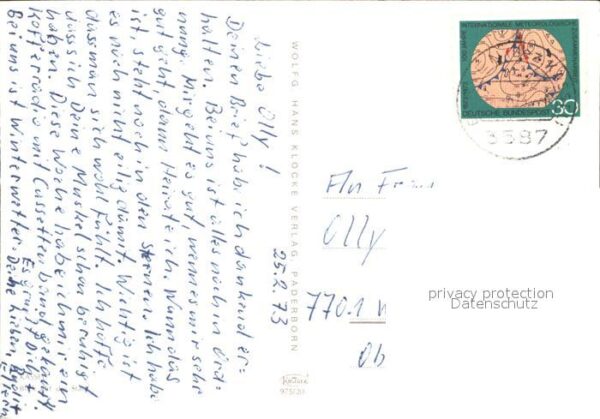 Liebe Olly!
Deinen Brief hab ich dankend er-
halten. Bei uns ist alles noch in Ord-
nung. Mir geht es gut, wenn es mir sehr
gut geht dann Heirate ich. Wann das
ist, steht noch in den Sternen. Ich habe
es noch nicht eilig damit. Wichtig ist
dass man sich wohl fühlt. Ich hoffe
dass sich Deine Muskel schon beruhigt
haben. Diese Woche habe ich mir ein
Kofferradio mit Cassetten Band gekauft.
Bei uns ist Winterwetter.
Es grüßt Dich
Deine lieben Eltern
25.2.73
WOLFG. HANS KLOCKE VERLAG PADERBORN
INTERNATIONALE METEOROLOGISCHE
ZUSAMMENARBEIT
100 JAHRE
1873-1973
DEUTSCHE BUNDESPOST
30
3587
An Frau
Olly
7701
Ob
privacy protection
Datenschutz